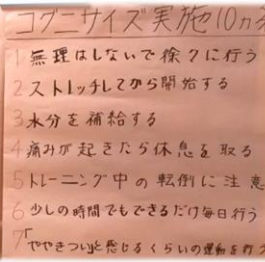 コグニサイズ実施10カ条
1 無理はしないで徐々に行う
2 ストレッチしてから開始する
3 水分を補給する
4 痛みが起きたら休息を取る
5 トレーニング中の転倒に注意
6 少しの時間でもできるだけ毎日行う
7「ややきつい」と感じるくらいの運動を行う